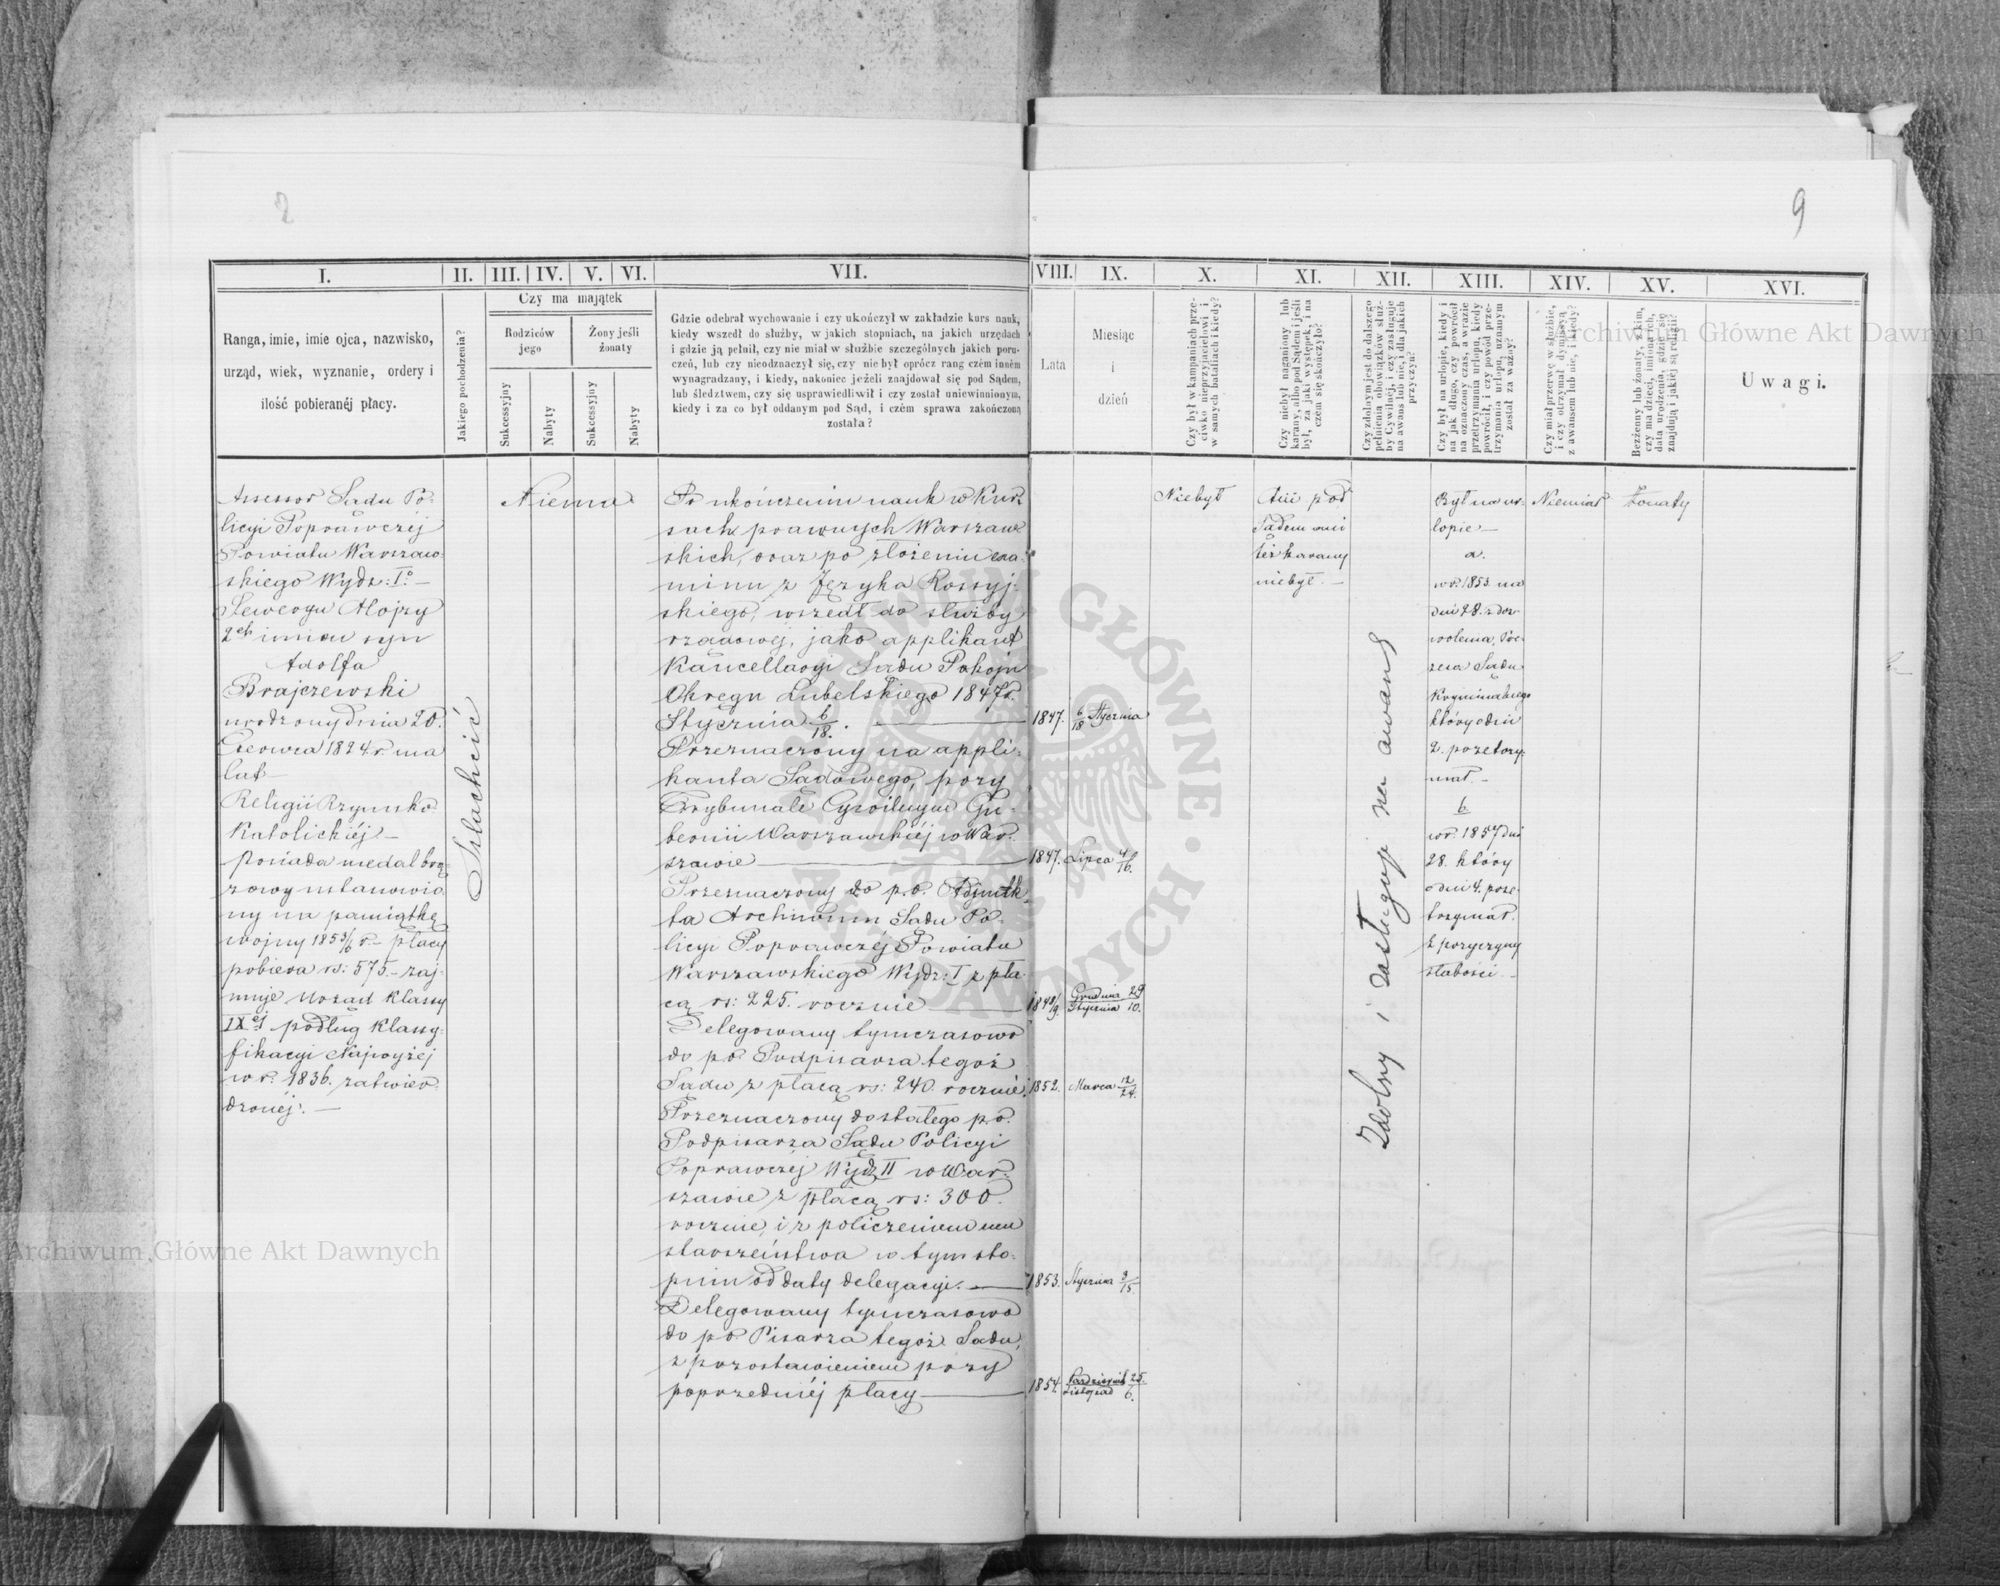 2
9
I.
II.
III.
IV.
V.
VI.
VII.
VIII.
IX.
X.
XI.
XII.
XIII.
XIV.
XV.
XVI.
Ranga, imie, imie ojca, nazwisko,
urząd, wiek, wyznanie, ordery i
ilość pobieranéj płacy.
Jakiego pochodzenia?
Czy ma majątek
Rodziców
jego
Żony jeśli
żonaty
Sukcessyjny
Nabyty
Sukcessyjny
Nabyty
Gdzie odebrał wychowanie i czy ukończył w zakładzie kurs nauk,
kiedy wszedł do służby, w jakich stopniach, na jakich urzędach
i gdzie ją pełnił, czy nie miał w służbie szczególnych jakich poru-
czeń, lub czy nieodznaczył się, czy nie był oprócz rang czém inném
wynagradzany, i kiedy, nakoniec jeżeli znajdował się pod Sądem,
lub śledztwem, czy się usprawiedliwił i czy został uniewinnionym,
kiedy i za co był oddanym pod Sąd, i czém sprawa zakończoną
została?
Lata
Miesiąc
i
dzień
Czy był w kampaniach prze-
ciwko nieprzyjacielowi i
w samych batalijach i kiedy?
Czy niebył naganiony lub
karany, albo pod Sądem i jeśli
był, za jaki występek, i na
czém się skończyło?
Czy zdolnym jest do dalszego
pełnienia obowiązków służ-
by Cywilnéj, i czy zasługuje
na awans lub nie, i dla jakich
przyczyn?
Czy był na urlopie, kiedy i
na jak długo, czy powrócił
na oznaczony czas, a w razie
przetrzymania urlopu, kiedy
powrócił, i czy powód prze-
trzymania urlopu, uznanym
został za ważny?
Czy miał przerwę w służbie,
i czy otrzymał dymisyą
z awansem lub nie, i kiedy?
Bezżenny lub żonaty, z kim,
czy ma dzieci, imiona ich,
data urodzenia, gdzie się
znajdują i jakiéj są religii?
Uwagi.
Assessor Sadu Po-
licyi Poprawczéj
Powiatu Warszaw-
skiego Wydz: I°. —
Seweryn Alojzy
2ch imion syn
Adolfa
Brajczewski
urodzony dnia 20.
Czerwca 1824 r. ma
lat —
Religii Rzymsko
Katolickiéj —
posiada medal brą-
zowy ustanowio-
ny na pamiątkę
wojny 1853/6 r. — płacy
pobiera rs: 575. — zaj-
muje Urząd Klassy
IXej podług Klassy-
fikacyi Najwyżej
w r. 1836. zatwier-
dzonéj. —
Szlachcić
Niema
Po ukończeniu nauk w Kur-
sach prawnych Warszaw-
skich, oraz po złożeniu exa-
minu z Języka Rossyj-
skiego, wszedł do służby
rządowéj, jako applikant
Kancellaryi Sadu Pokoju
Okręgu Lubelskiego 1847 r.
Stycznia 6/18. —
1847.
6/18 Stycznia
Przeznaczony na appli-
kanta Sądowego, przy
Trybunale Cywilnym Gu-
bernii Warszawskiéj w War-
szawie —
1847.
Lipca 4/16.
Przeznaczony do p.o. Adjunk-
ta Archiwum Sadu Po-
licyi Poprawczéj Powiatu
Warszawskiego Wydz: I z pła-
cą rs: 225. rocznie —
1848/9.
Grudnia 29
Stycznia 10.
Delegowany tymczasowo
do po. Podpisarza tegoż
Sadu z płacą rs: 240. rocznie.
1852.
Marca 12/24.
Przeznaczony do stałego po.
Podpisarza Sądu Policyi
Poprawczéj Wydz II w War-
szawie z płacą rs: 300.
rocznie, i z policzeniem mu
starszeństwa w tym sto-
pniu od daty delegacyi. —
1853.
Stycznia 3/15.
Delegowany tymczasowo
do po Pisarza tegoż Sadu,
z pozostawieniem przy
poprzedniéj płacy —
1854.
Październik 25.
Listopad 6.
Niebył
Ani pod
Sadem ani
też karany
niebył. —
Zdolny i zasługuje na awans
Był na ur-
lopie —
a.
w r. 1853. na
dni 28. z doz-
wolenia Pre-
zesa Sadu
Kryminalnego
który o dni
2. przetrzy-
mał. —
b
w r. 1857 dni
28. który
o dni 4. prze-
trzymał.
z przyczyny
słabości. —
Niemiał
Żonaty
Archiwum Główne Akt Dawnych
Archiwum Główne Akt Dawnych
ARCHIWUM GŁÓWNE AKT DAWNYCH